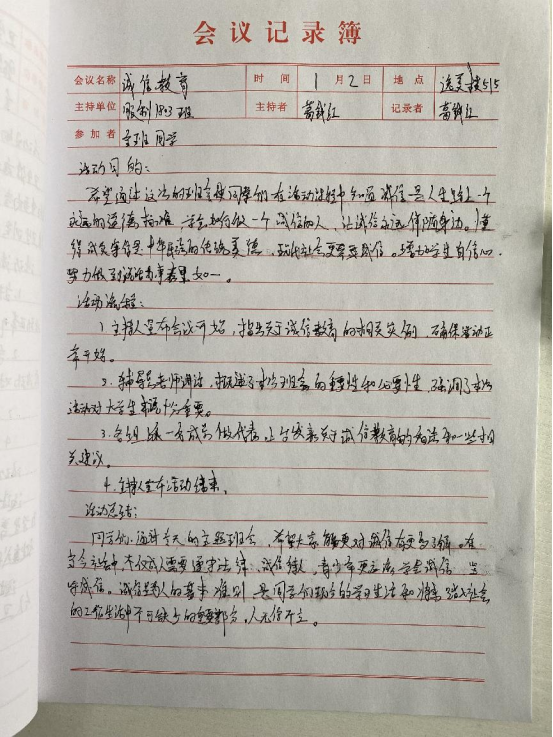 会议记录簿
会议名称 诚信教育 时间 1月2日 地点 逸夫楼515
主持单位 服制1803班 主持者 葛钱红 记录者 葛钱红
参加者 全班同学
活动目的：
希望通过这次的班会使同学们在活动过程中知道诚信是人生路上一个
永远的道德标准，学会如何做一个诚信的人，让诚信永远伴随身边。懂
得诚实守信是中华民族的传统美德，现代社会更需要诚信。增加学生自信心，
努力做到说话办事表里如一。
活动流程：
1.主持人宣布会议开始，指出关于诚信教育的相关实例，确保活动正
常开始。
2.辅导员老师讲话，概述了本次班会的重要性和必要性，强调了本次
活动对大学生来说十分重要。
3.各组派一名成员做代表，上台发表关于诚信教育的看法和一些相
关建议。
4.主持人宣布活动结束。
活动总结：
同学们，通过今天的主题班会，希望大家能更对诚信有更多了解。在
当今社会中，不仅成人需要遵守法律、诚信做人，青少年更应该学会诚信、坚
守诚信。诚信是为人的基本准则，是同学们现在的学习生活和将来踏入社会
的工作生活中不可缺少的重要部分，人无信不立。